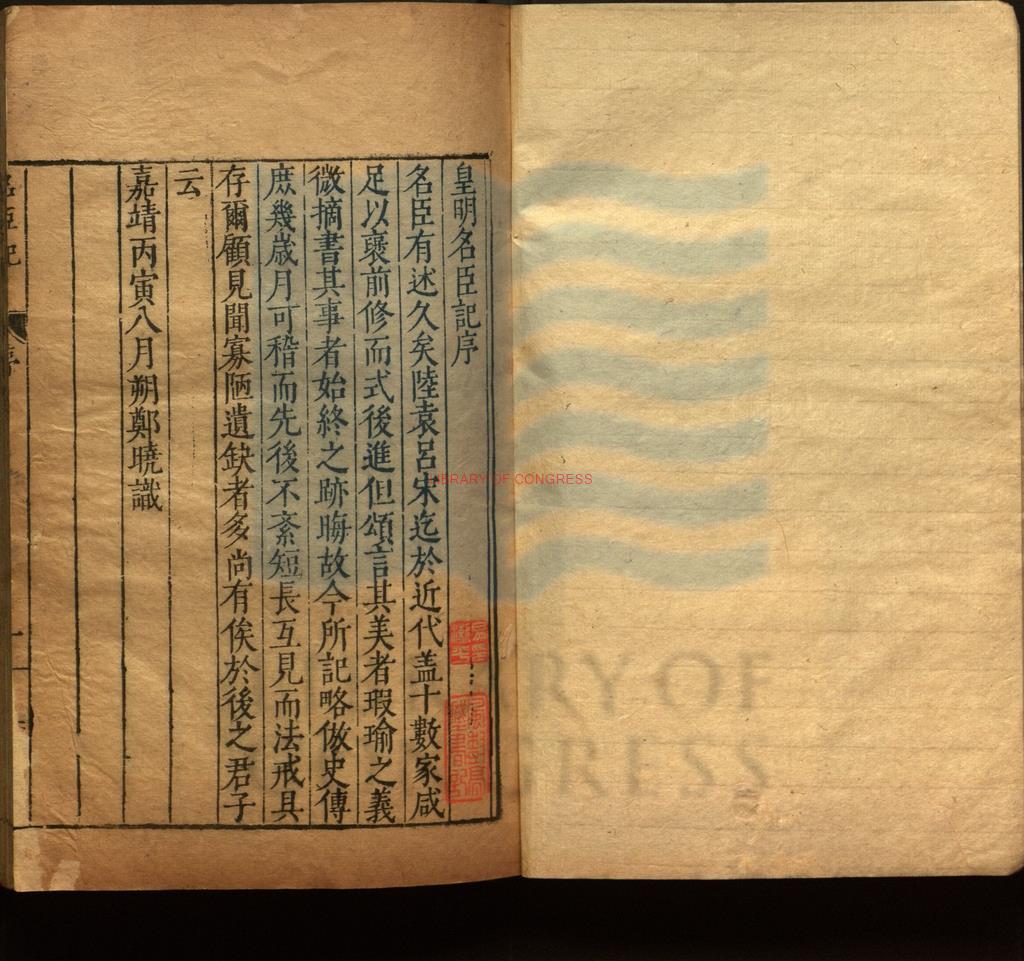 皇明名臣記序
名臣有述久矣陸袁呂宋迄於近代盖十數家咸
足以襃前修而式後進但頌言其美者瑕瑜之義
微摘書其事者始終之跡晦故今所記略倣史傳
庶幾歲月可稽而先後不紊短長互見而法戒具
存爾顧見聞寡陋遺缺者多尚有俟於後之君子
云
嘉靖丙寅八月朔鄭曉識
名臣記
序
一
LIBRARY OF CONGRESS
RY OF
GRESS